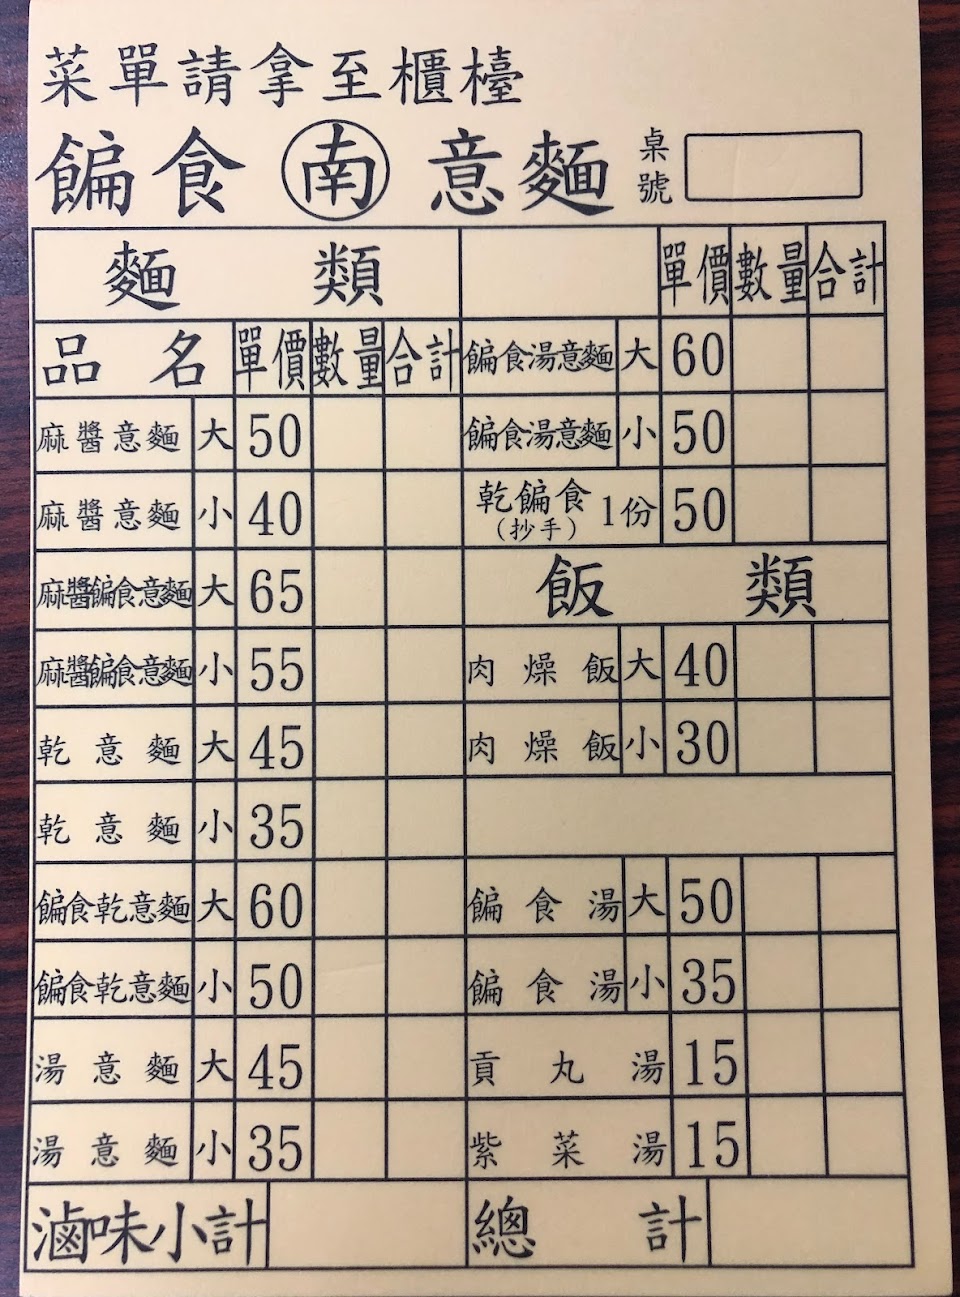 菜單請拿至櫃檯
餶食 南 意麵 桌號
麵類
品名 單價 數量 合計
麻醬意麵 大 50
麻醬意麵 小 40
麻醬餶食意麵 大 65
麻醬餶食意麵 小 55
乾意麵 大 45
乾意麵 小 35
餶食乾意麵 大 60
餶食乾意麵 小 50
湯意麵 大 45
湯意麵 小 35
滷味小計
單價 數量 合計
餶食湯意麵 大 60
餶食湯意麵 小 50
乾餶食 1份 50
(抄手)
飯類
肉燥飯 大 40
肉燥飯 小 30
餶食湯 大 50
餶食湯 小 35
貢丸湯 15
紫菜湯 15
總計